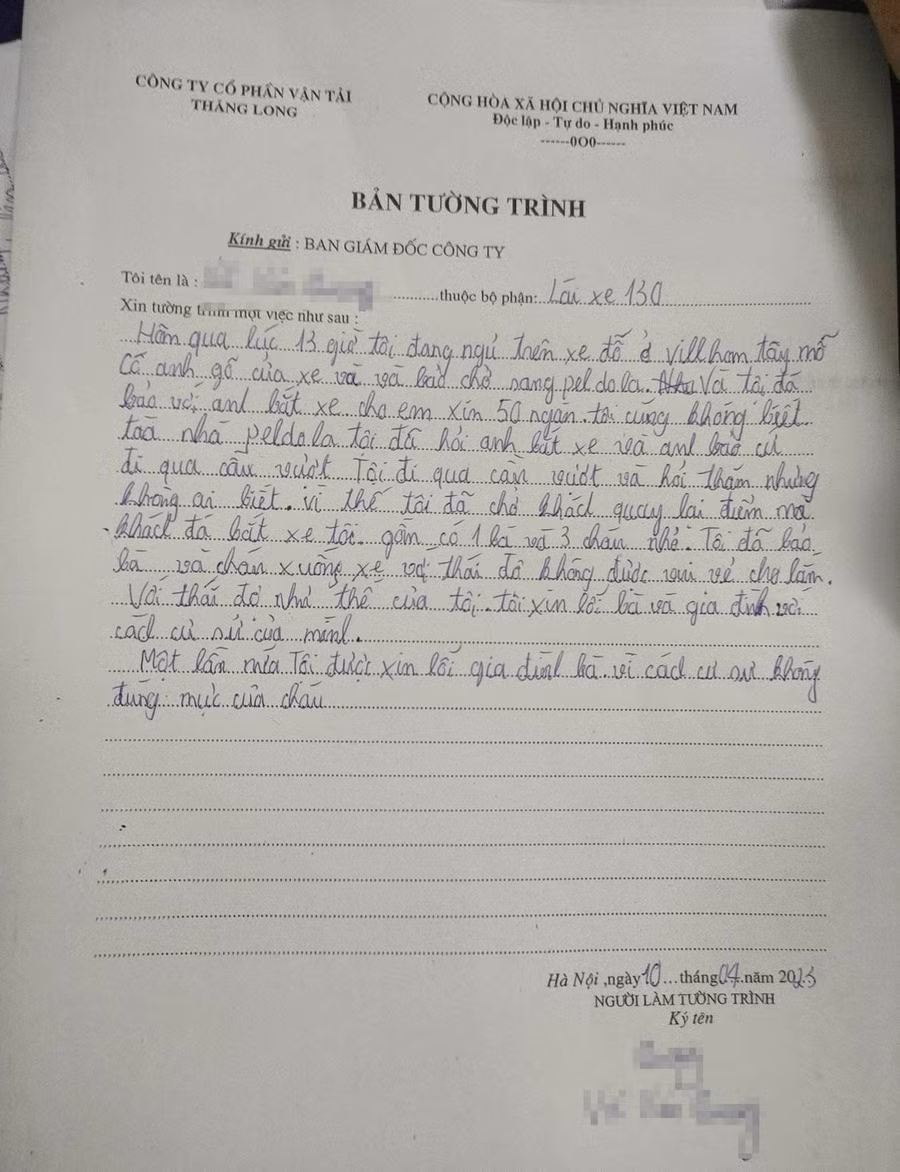 CÔNG TY CỔ PHẦN VẬN TẢI
THĂNG LONG
CỘNG HÒA XÃ HỘI CHỦ NGHĨA VIỆT NAM
Độc lập - Tự do - Hạnh phúc
------0O0------
BẢN TƯỜNG TRÌNH
Kính gửi : BAN GIÁM ĐỐC CÔNG TY
Tôi tên là : ..........thuộc bộ phận: Lái xe 130
Xin tường trình một việc như sau :
Hôm qua lúc 13 giờ tôi đang ngủ trên xe đỗ ở Villhom tây mỗ
Có anh gõ cửa xe và và bảo chở sang peldola. Và tôi đã
bảo với anh bắt xe cho em xin 50 ngàn. tôi cũng không biết
toà nhà peldola tôi đã hỏi anh bắt xe và anh bảo cứ
đi qua cầu vượt. Tôi đi qua cầu vượt và hỏi thăm nhưng
không ai biết. vì thế tôi đã chở khách quay lại điểm mà
khách đã bắt xe tôi. gồm có 1 bà và 3 cháu nhỏ. Tôi đã bảo
bà và cháu xuống xe với thái độ không được vui vẻ cho lắm.
Với thái độ như thế của tôi. tôi xin lỗi bà và gia đình với
cách cư sử của mình.
Một lần nữa Tôi được xin lỗi gia đình bà vì cách cư sử không
đúng mực của cháu
Hà Nội ,ngày 10 ...tháng 04 .năm 2023
NGƯỜI LÀM TƯỜNG TRÌNH
Ký tên